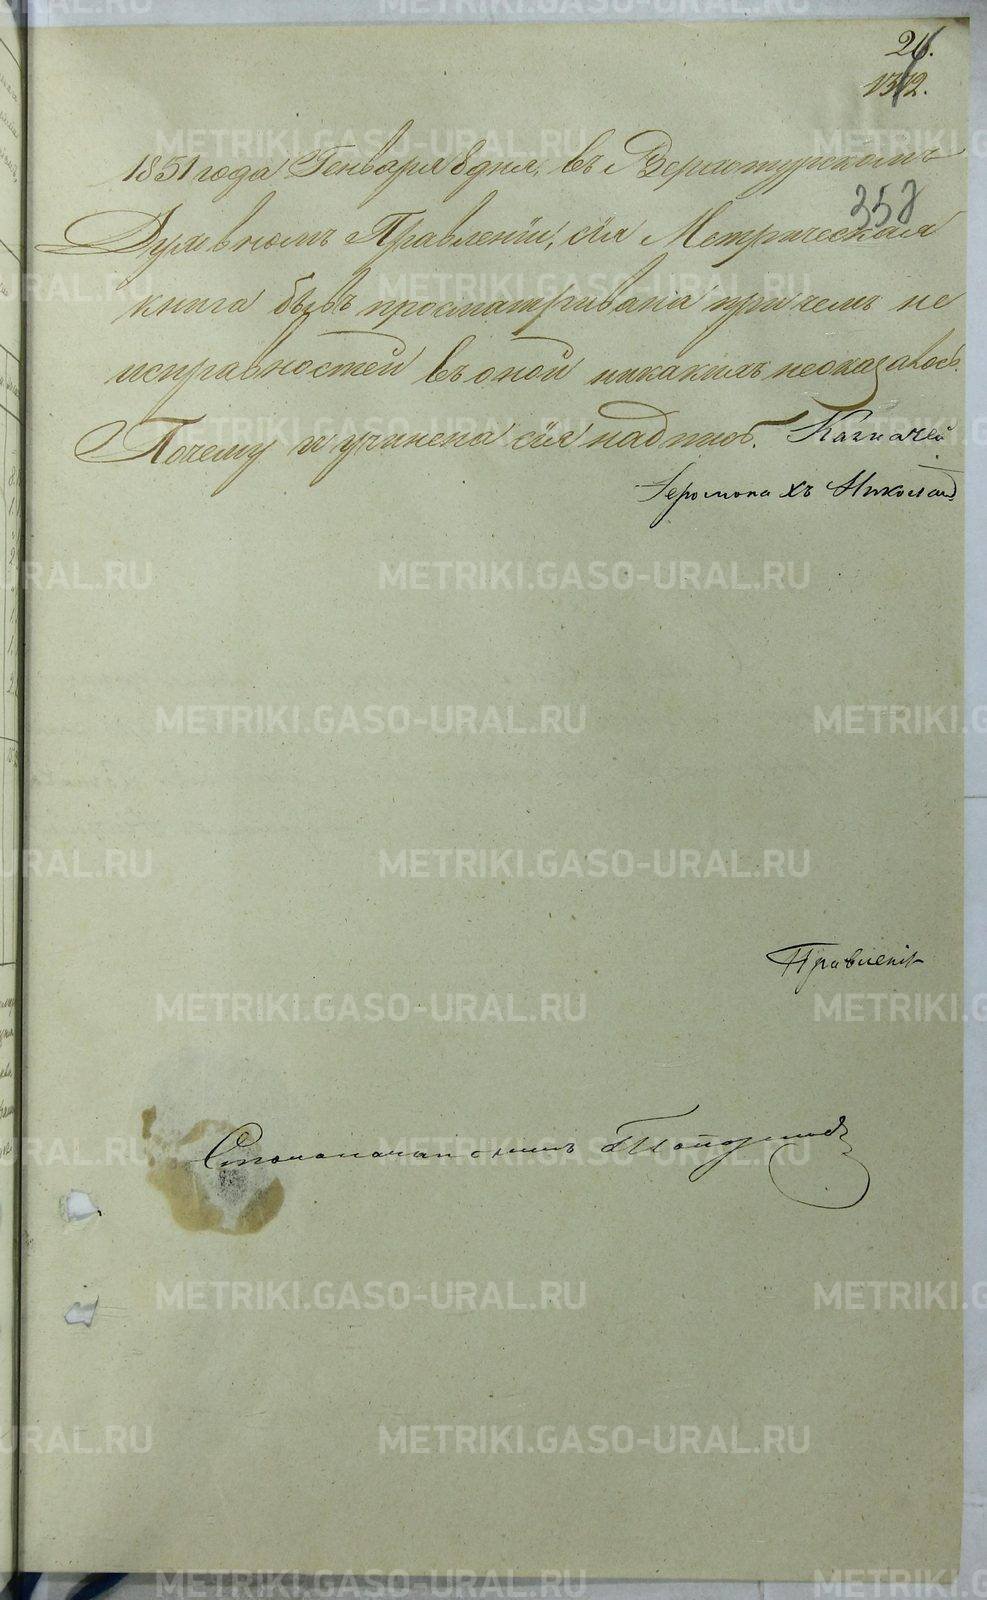 26.
1372.
1851 года Генваря 8 дня, въ Верхотурскомъ
358
Духовномъ Правленіи, сія Метрическая
книга былъ просматривана при чемъ не
исправностей въ оной никакихъ неоказалось.
Почему и учинена сія надпись. Казначей
Іеромонахъ Николай
Правленія
Столоначальникъ
METRIKI.GASO-URAL.RU